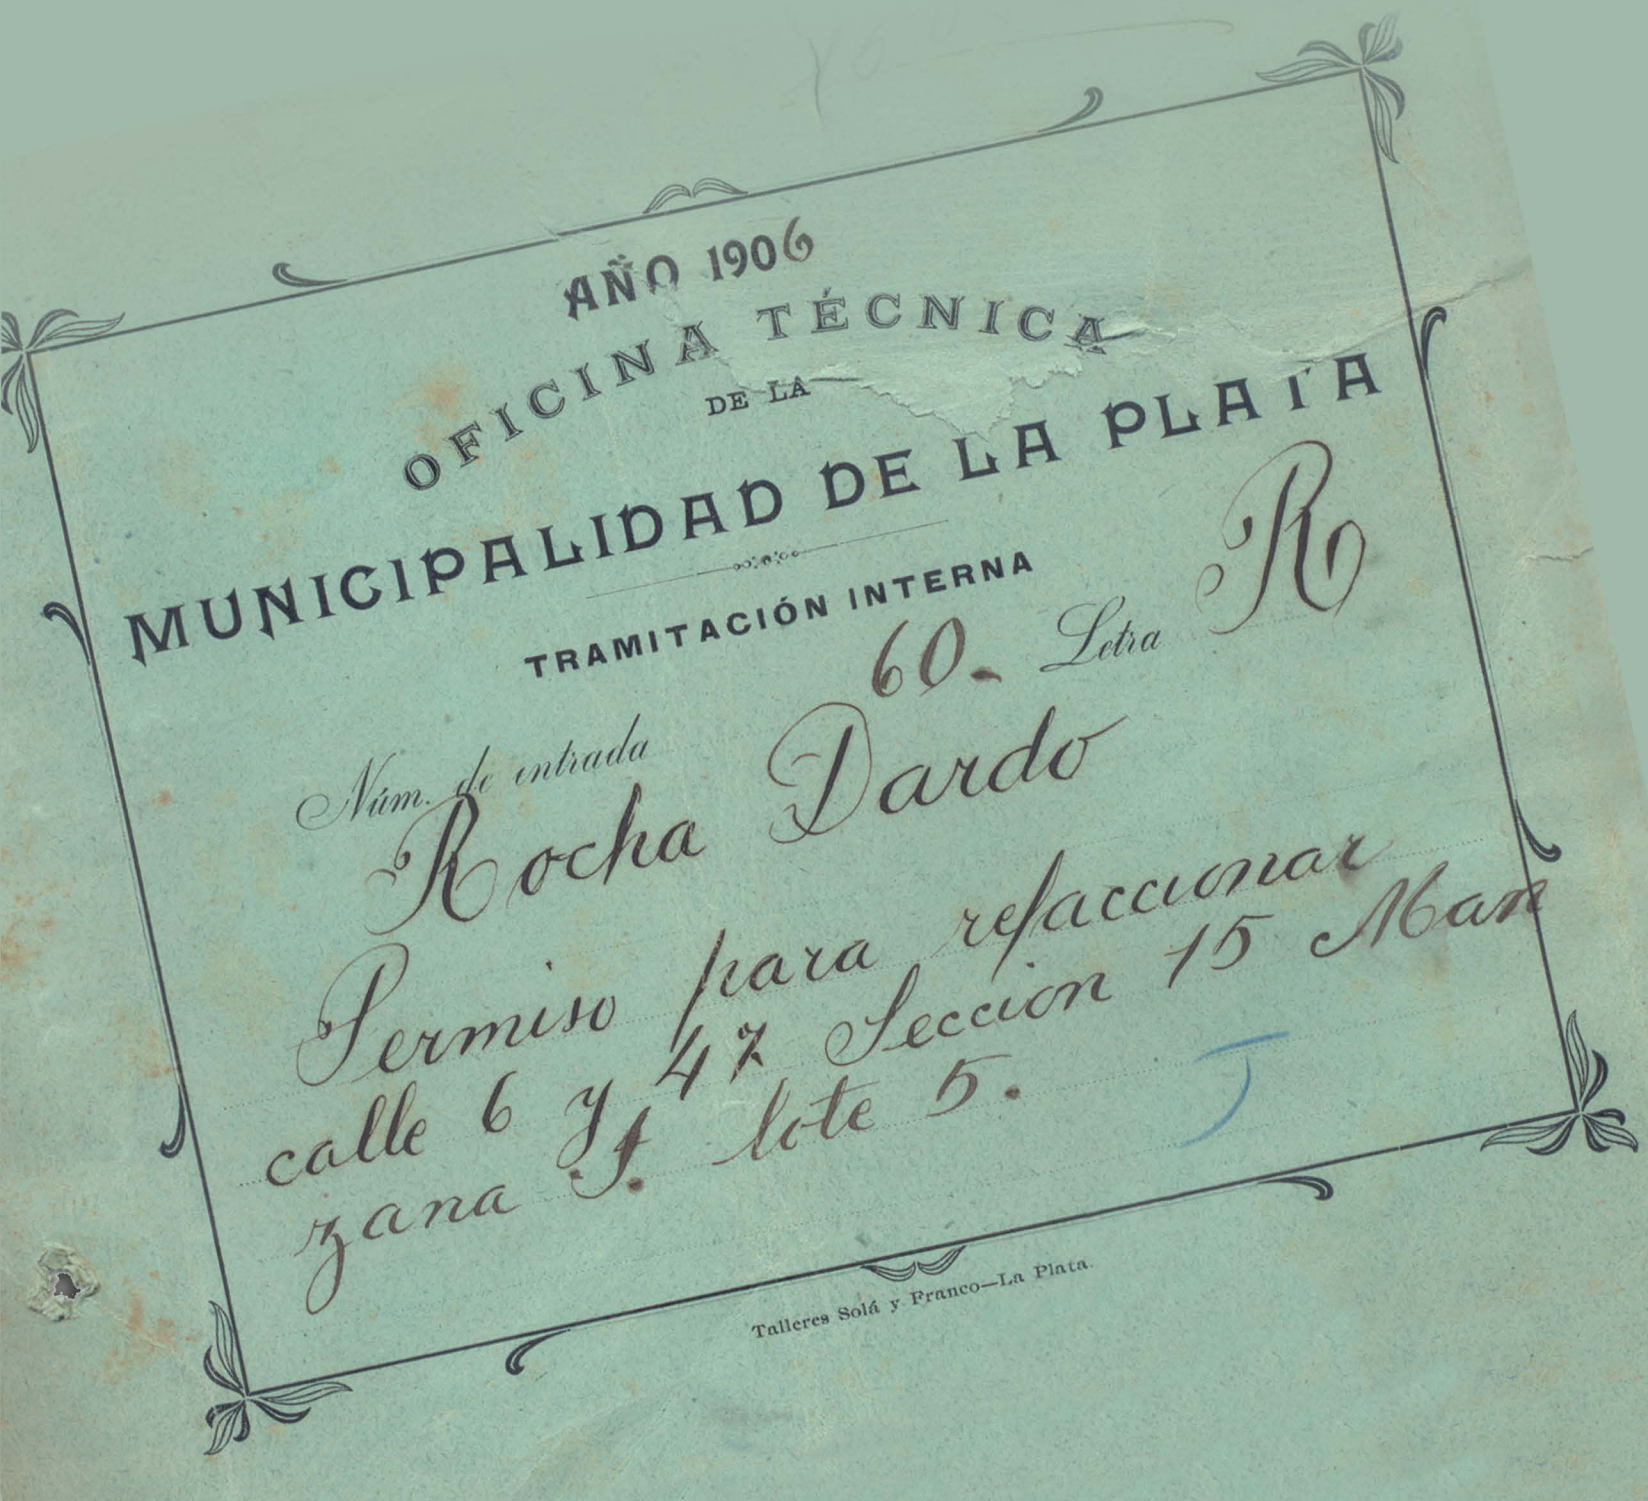 AÑO 1906
OFICINA TÉCNICA
DE LA
MUNICIPALIDAD DE LA PLATA
TRAMITACIÓN INTERNA
Núm. de entrada 60. Letra R
Rocha Dardo
Permiso para refaccionar
calle 6 y 47 Seccion 15 Man
zana f. lote 5.
Talleres Solá y Franco—La Plata.